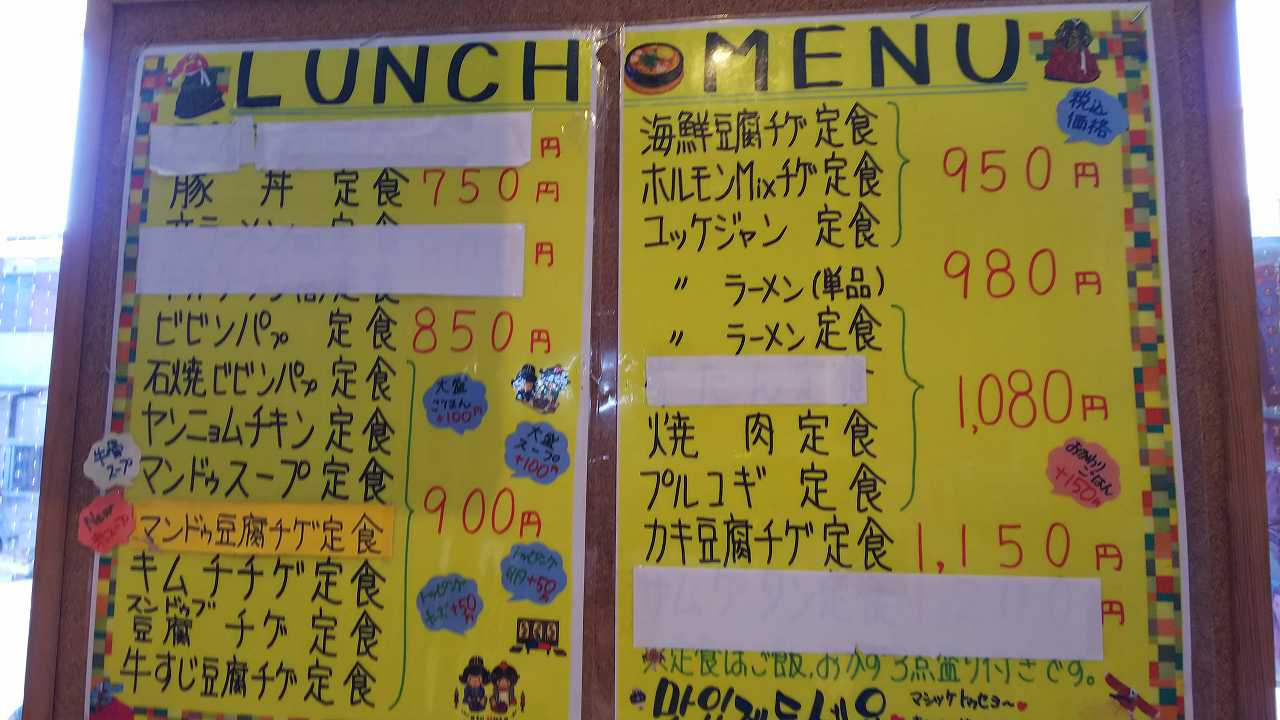 LUNCH MENU
円
豚丼定食 750円
円
ビビンパプ 定食 850円
石焼ビビンパプ 定食
ヤンニョムチキン 定食
マンドゥスープ 定食
マンドゥ豆腐チゲ定食
キムチチゲ定食
スンドゥブ
豆腐チゲ定食
牛すじ豆腐チゲ定食
900円
大盛
ごはん
+100円
大盛
スープ
+100円
スープ
New
トッピング
+50円
トッピング
+50円
税込
価格
海鮮豆腐チゲ定食
ホルモンMixチゲ定食
ユッケジャン 定食
950円
〃 ラーメン(単品) 980円
〃 ラーメン定食
焼肉定食
プルコギ 定食
1,080円
おかわり
ごはん
+150円
カキ豆腐チゲ定食 1,150円
円
※定食はご飯、おかず3点盛り付きです。
マシッケトゥセヨ～